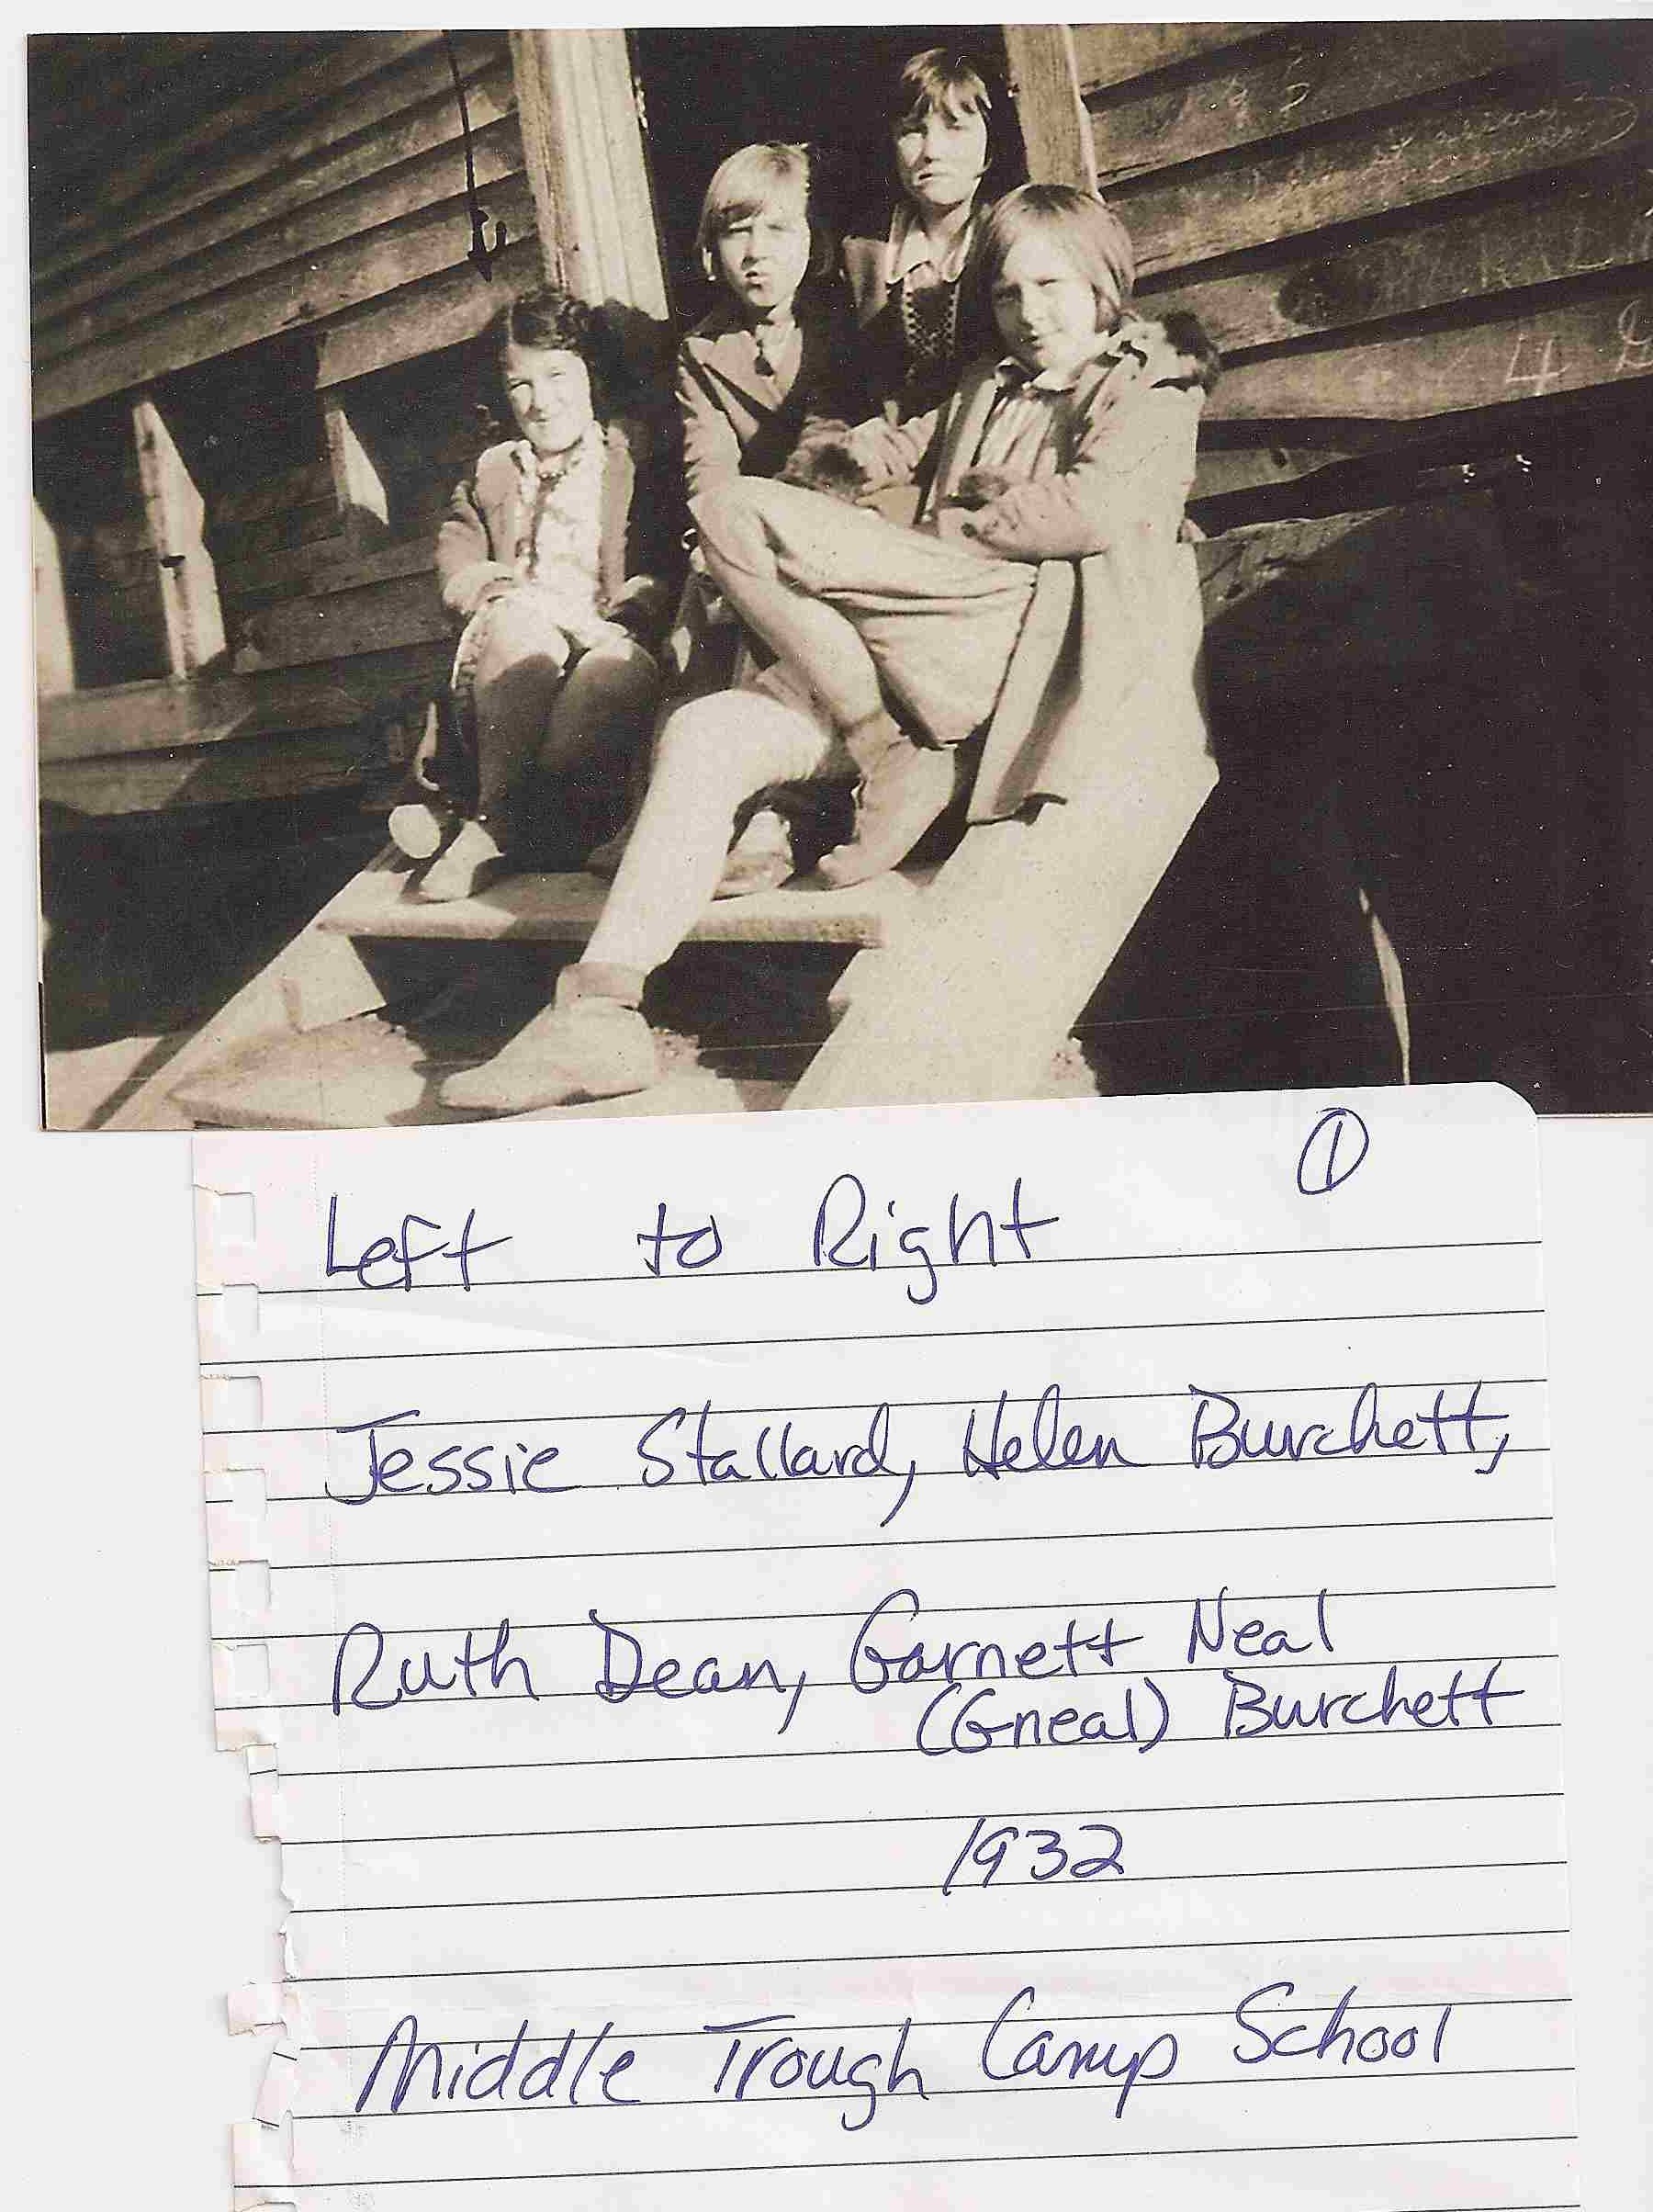 4
①
Left to Right
Jessie Stallard, Helen Burchett,
Ruth Dean, Garnett Neal
(Gneal) Burchett
1932
Middle Trough Camp School